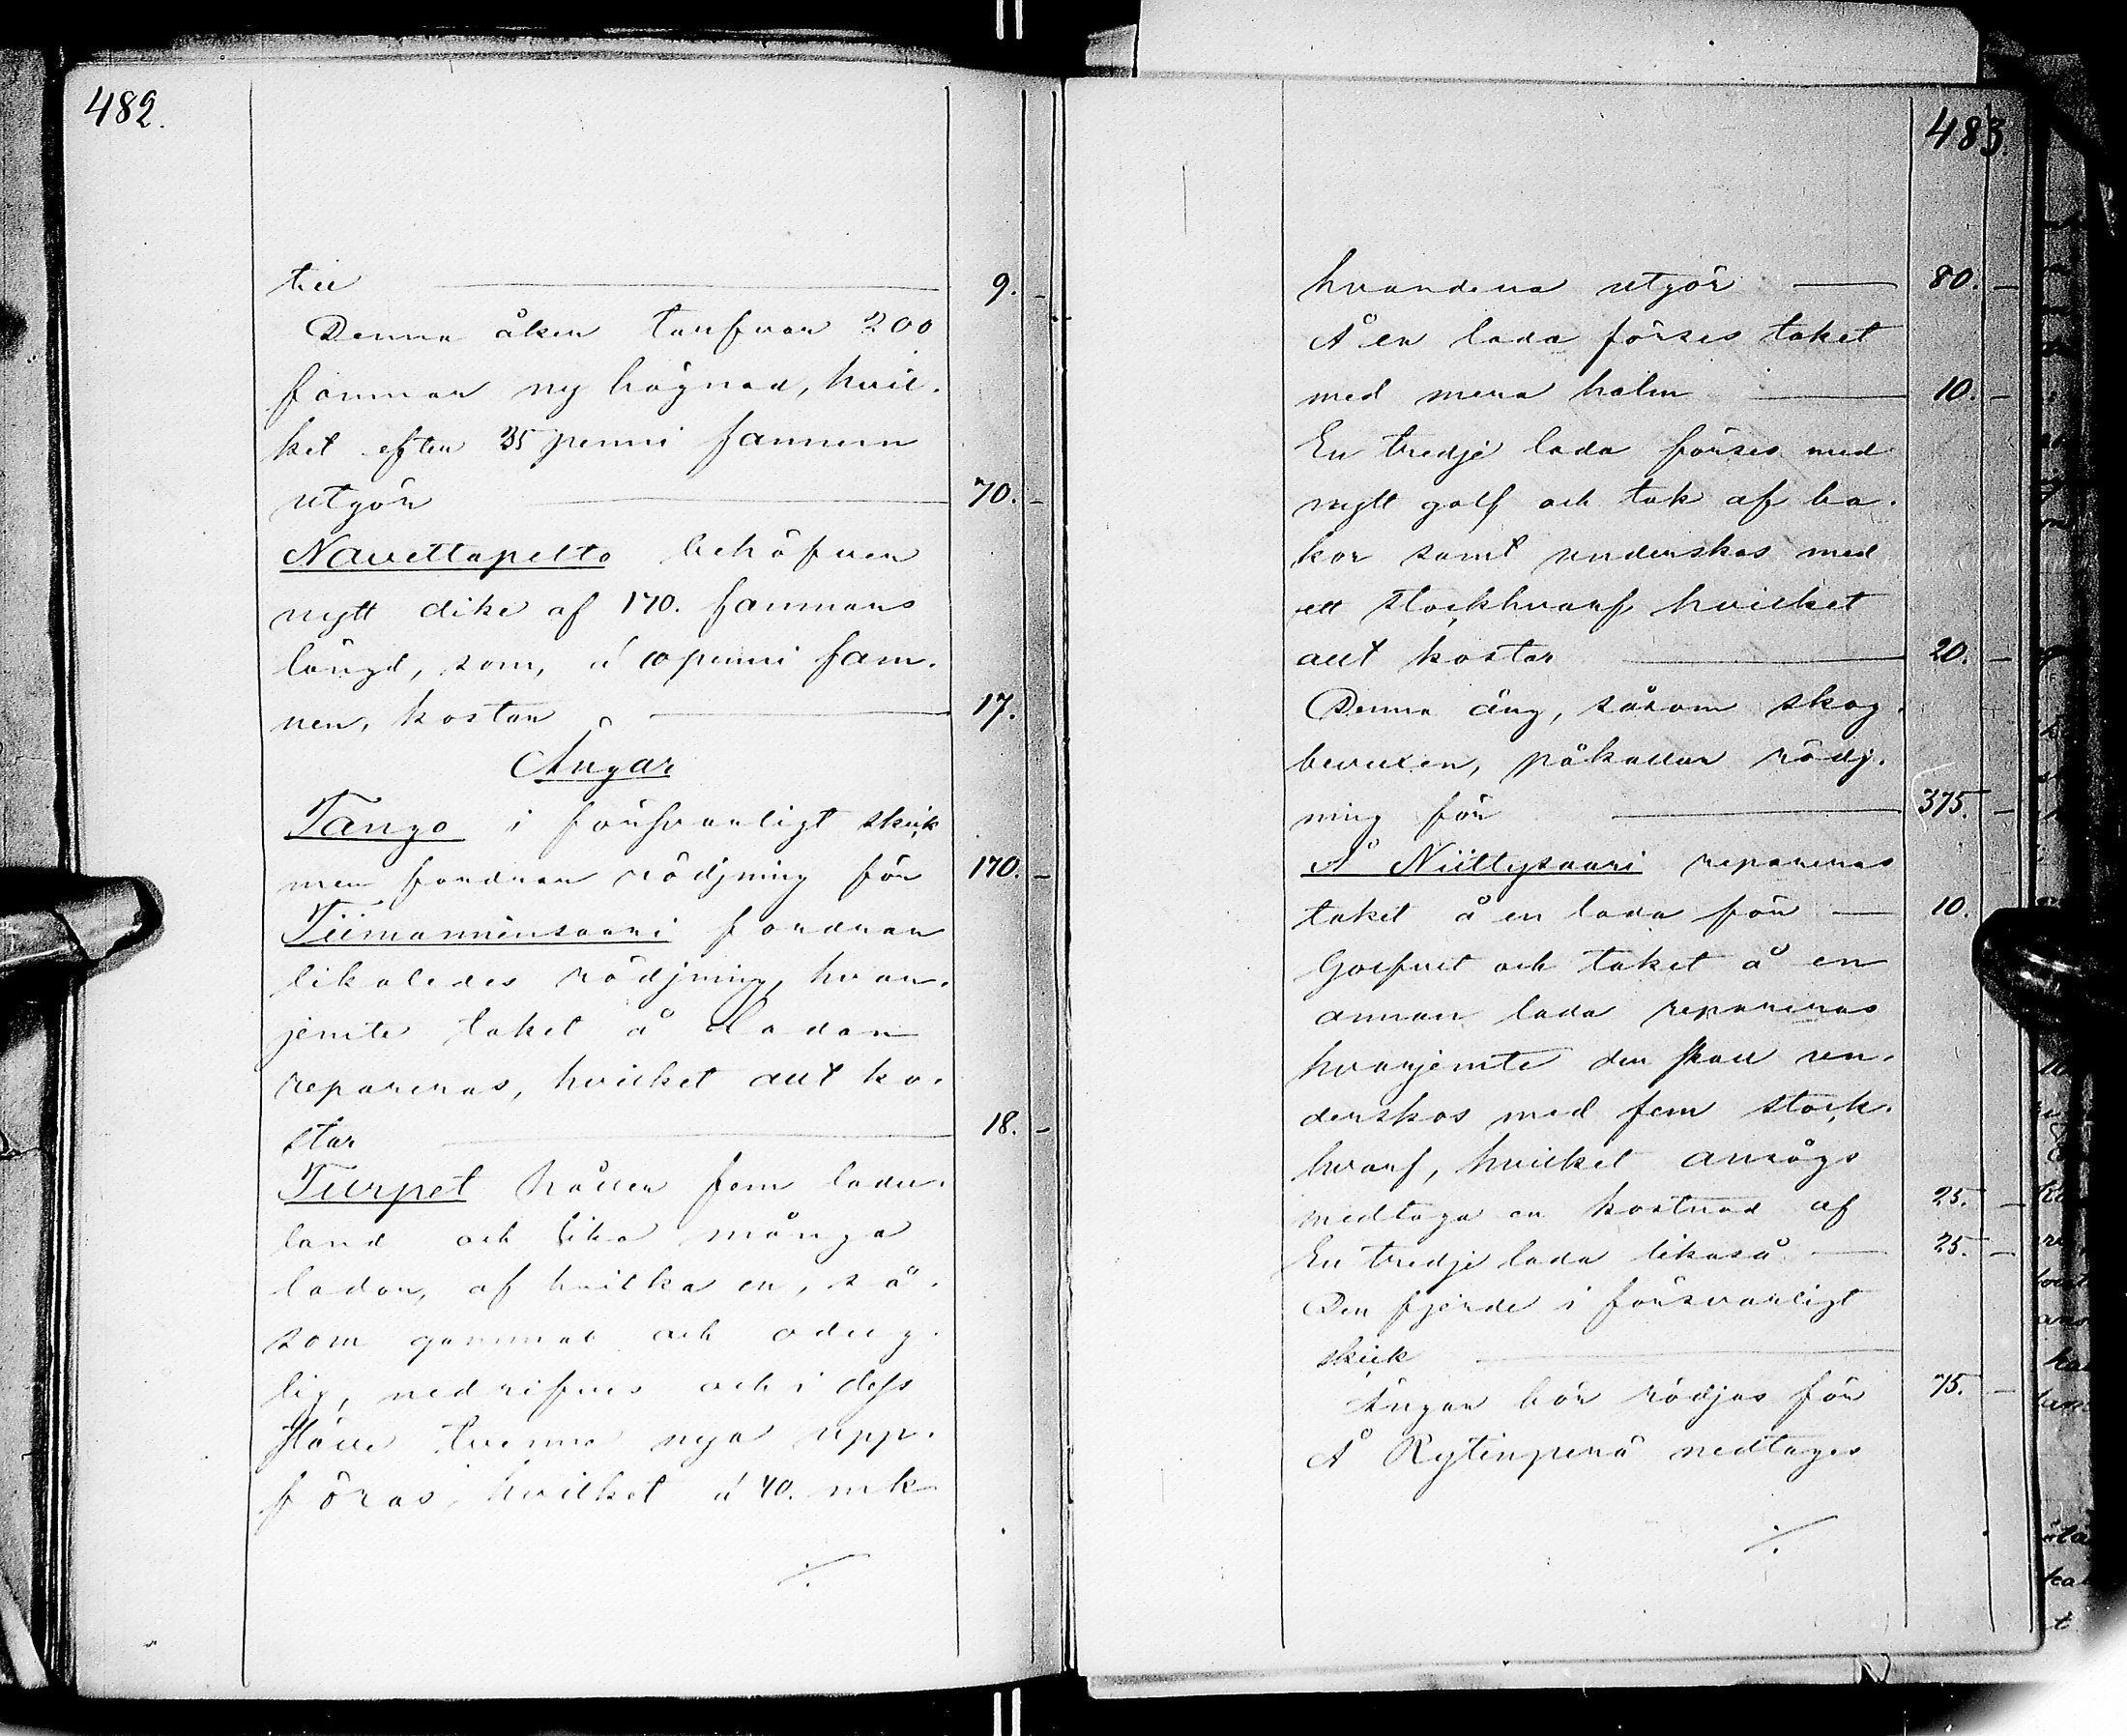 482.
till — 9. -
Denna åker tarfvar 200
famnar ny hägnad, hvil-
ket efter 35 penni famnen
utgör — 70. -
Navettapelto behöfver
nytt dike af 170. famnars
längd, som, á 10 penni fam-
nen, kostar — 17.
Ängar
Tango i försvarligt skick
men fordrar rödjning för 170. -
Tiimanninsaari fordrar
likaledes rödjning, hvar-
jemte taket å ladan
repareras, hvilket allt ko-
star — 18. -
Turpet håller fem lade-
land och lika många
lador, af hvilka en, så-
som gammal och odug-
lig, nedrifves och i dess
ställe tvenne nya upp-
föras, hvilket á 40. mk
./.
483.
hvardera utgör — 80. -
Å en lada förses taket
med mera halm — 10. -
En tredje lada förses med
nytt golf och tak af ba-
kor samt underskos med
ett stockhvarf, hvilket
allt kostar — 20. -
Denna äng, såsom skog-
bevuxen, påkallar rödj-
ning för — 375. -
Å Niittysaari repareras
taket å en lada för — 10.
Golfvet och taket å en
annan lada repareras
hvarjemte den skall un-
derskos med fem stock-
hvarf, hvilket ansågs
medtaga en kostnad af 25. -
En tredje lada likaså — 25. -
Den fjerde i försvarligt
skick —
Ängen bör rödjas för 75. -
Å Rytinperä nedtages
./.